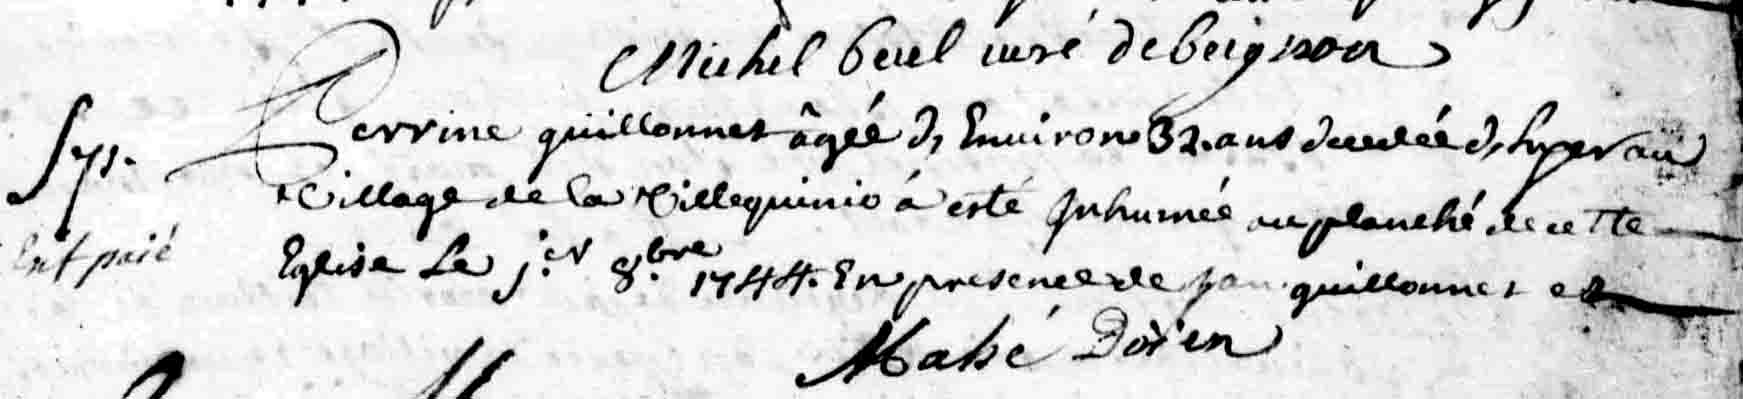 Michel bevel curé de beignon
Sps.
Perrine guillonnet âgée d'Environ 32. ans decedée d'hyer au
Village de la Villequinio á esté Inhumée au planché de cette
Est paié
Eglise Le j.er 8.bre 1744. En presence de Jan guillonnet et
Mahé Doïen